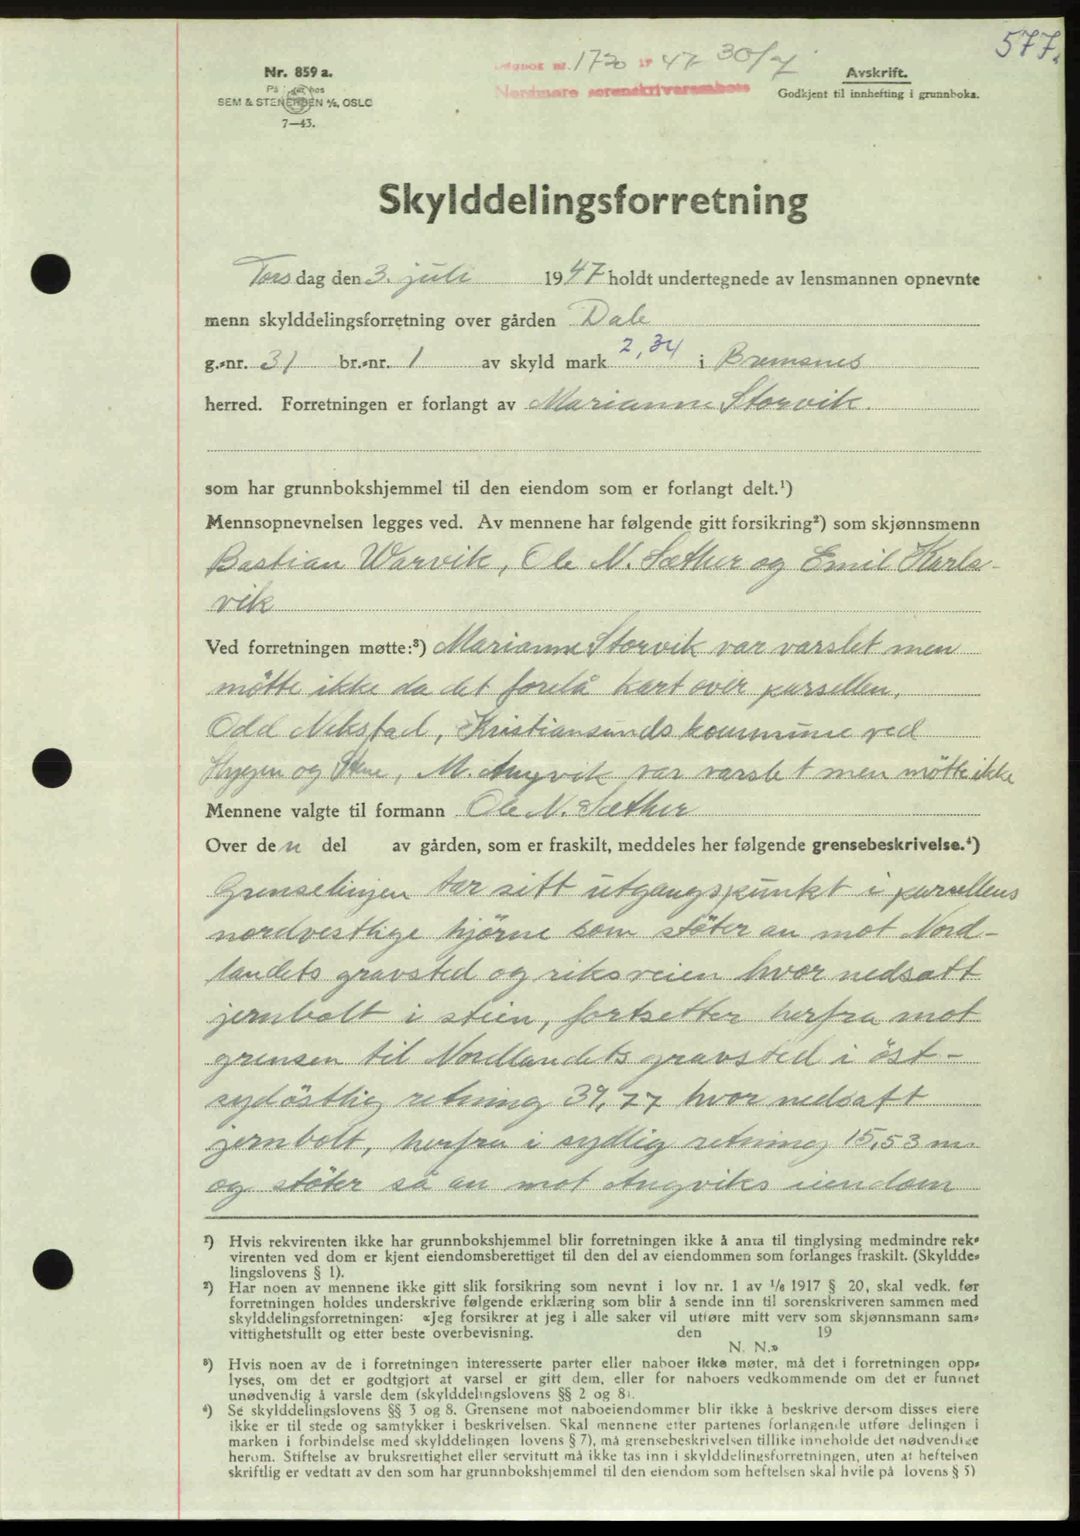 577.
Dagbok nr. 1720 19 47 30/7
Nordmøre sorenskriverembete
Nr. 859 a.
På lager hos
SEM & STENERSEN A/S, OSLO
7—43.
Avskrift.
Godkjent til innhefting i grunnboka.
Skylddelingsforretning
Torsdag den 3. juli 1947 holdt undertegnede av lensmannen opnevnte
menn skylddelingsforretning over gården Dale
g.-nr. 31 br.-nr. 1 av skyld mark 2,34 i Bremsnes
herred. Forretningen er forlangt av Marianne Storvik.
som har grunnbokshjemmel til den eiendom som er forlangt delt.¹)
Mennsopnevnelsen legges ved. Av mennene har følgende gitt forsikring²) som skjønnsmenn
Bastian Warvik, Ole N. Sæther og Emil Karls-
vik
Ved forretningen møtte:³) Marianne Storvik var varslet men
møtte ikke da det forelå kart over parsellen.
Odd Nekstad, Kristiansunds kommune ved
Hygen og, M. Angvik var varslet men møtte ikke
Mennene valgte til formann Ole N. Sæther
Over den del av gården, som er fraskilt, meddeles her følgende grensebeskrivelse.⁴)
Grenselinjen tar sitt utgangspunkt i parsellens
nordvestlige hjørne som støter an mot Nord-
landets gravsted og riksveien hvor nedsatt
jernbolt i stein, fortsetter herfra mot
grensen til Nordlandets gravsted i öst-
sydöstlig retning 39,77 hvor nedsatt
jernbolt, herfra i sydlig retning 15,53 m.
og støter så an mot Angviks eiendom
¹) Hvis rekvirenten ikke har grunnbokshjemmel blir forretningen ikke å anta til tinglysing medmindre rek-
virenten ved dom er kjent eiendomsberettiget til den del av eiendommen som forlanges fraskilt. (Skyldde-
lingslovens § 1).
²) Har noen av mennene ikke gitt slik forsikring som nevnt i lov nr. 1 av 1/6 1917 § 20, skal vedk. før
forretningen holdes underskrive følgende erklæring som blir å sende inn til sorenskriveren sammen med
skylddelingsforretningen: «Jeg forsikrer at jeg i alle saker vil utføre mitt verv som skjønnsmann sam-
vittighetsfullt og etter beste overbevisning. den 19
N. N.»
³) Hvis noen av de i forretningen interesserte parter eller naboer ikke møter, må det i forretningen opp-
lyses, om det er godtgjort at varsel er gitt dem, eller for naboers vedkommende om det er funnet
unødvendig å varsle dem (skylddelingslovens §§ 2 og 8).
⁴) Se skylddelingslovens §§ 3 og 8. Grensene mot naboeiendommer blir ikke å beskrive dersom disses eiere
ikke er til stede og samtykker i beskrivelsen. Skal mennene etter partenes forlangende utføre delingen i
marken i forbindelse med skylddelingen lovens § 7), må grensebeskrivelsen tillike inneholde det nødvendige
herom. Stiftelse av bruksrettighet eller servitutt må ikke tas inn i skylddelingsforretningen, uten at heftelsen
skriftlig er vedtatt av den som har grunnbokshjemmel til den eiendom som heftelsen skal hvile på lovens § 5)